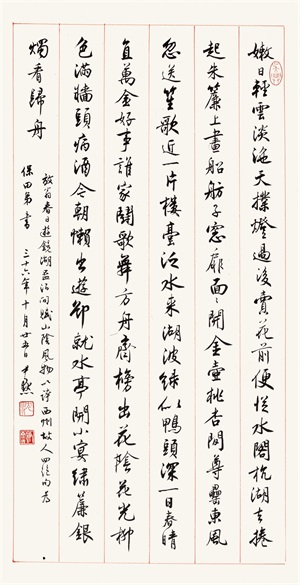 嫩日輕雲淡沲天撲燈過後賣花前便從水閣杭湖去捲
起朱簾上畫船舫子窓扉面面開金壺桃杏間尊罍東風
忽送笙歌近一片樓臺泛水來湖波綠似鴨頭深一日春晴
直萬金好事誰家鬪歌舞方舟齊榜出花陰花光柳
色滿牆頭病酒今朝懶出遊卻就水亭開小宴繡簾銀
燭看歸舟
放翁春日遊鏡湖間賦山陰風物西州故人四絕句為
保田弟書 三十六年十月廿日 尹默